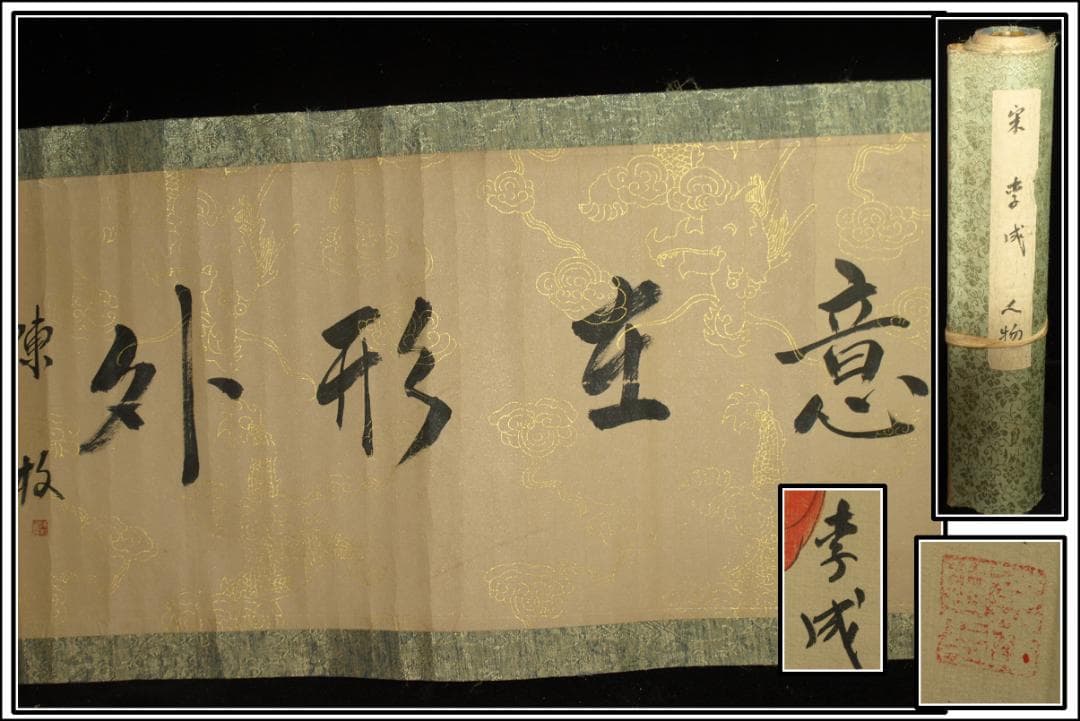 意在形外
陳枚
宋 李成 人物
李成